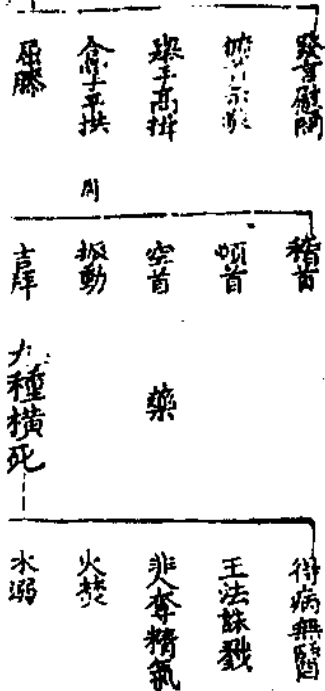 發言慰問
俯首示敬
舉手高揖
合掌平拱
屈膝
周
稽首
頓首
空首
振動
吉拜
藥
九種橫死
得病無醫
王法誅戮
非人奪精氣
火焚
水溺